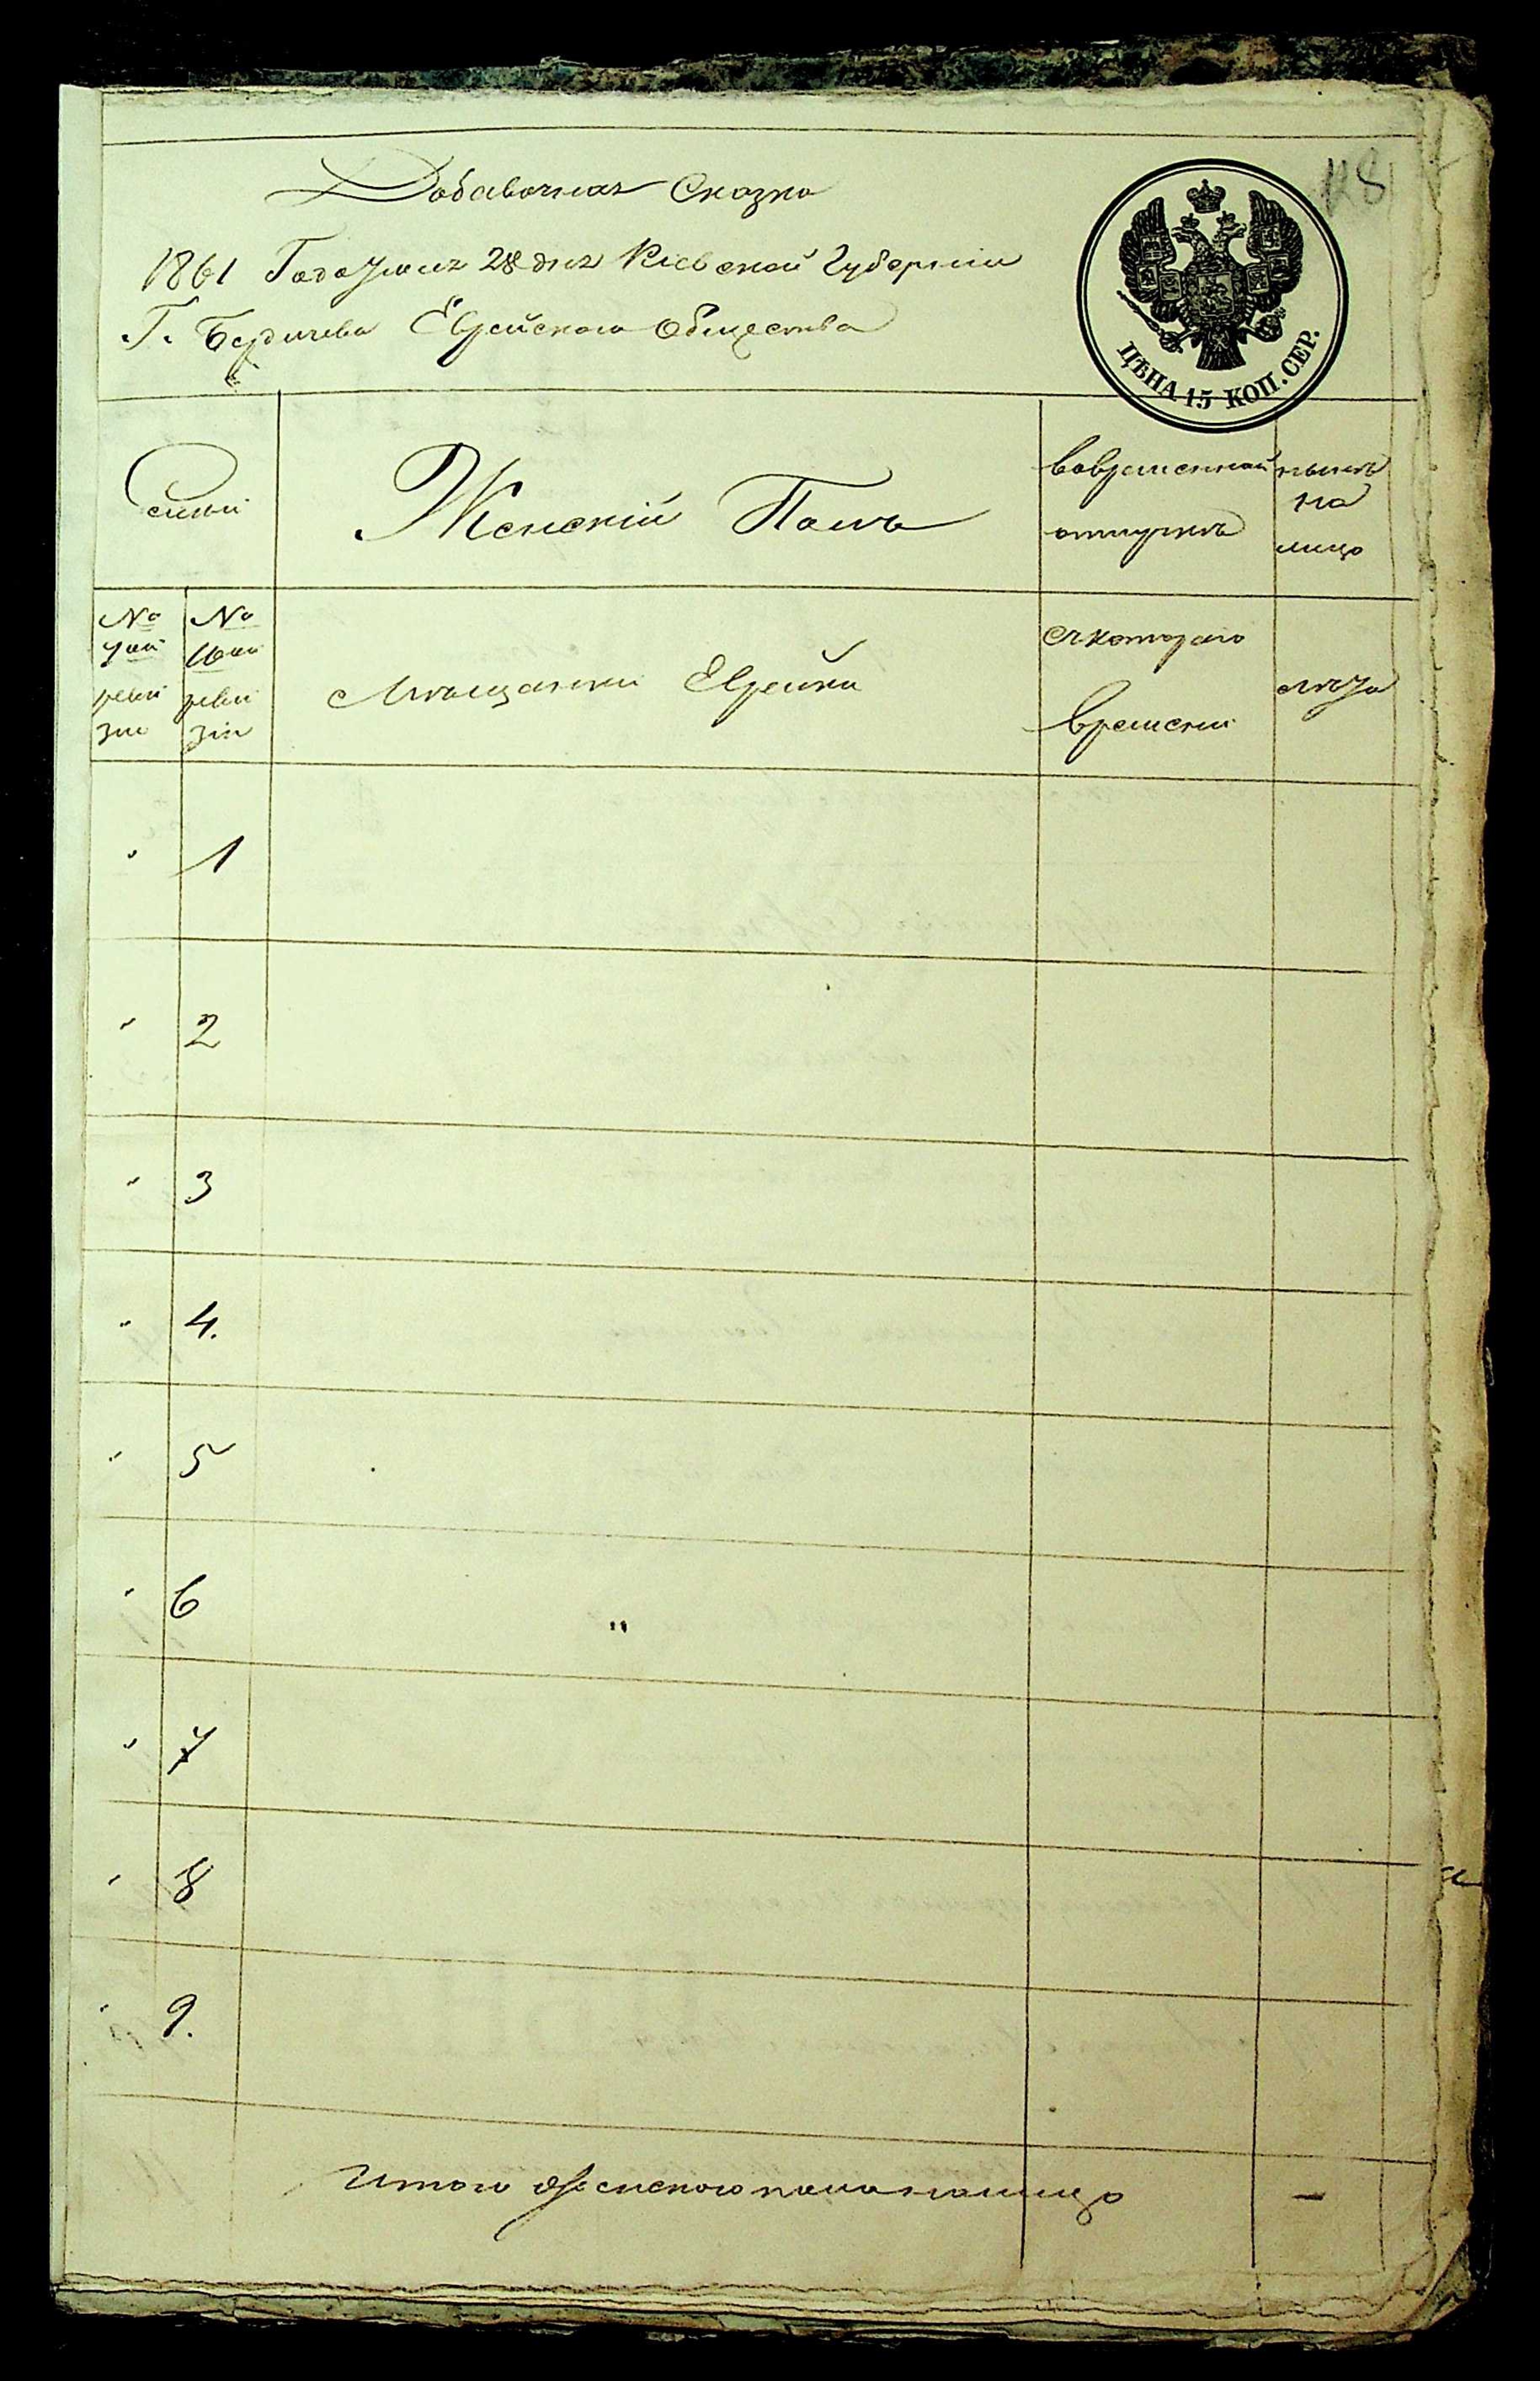 128
Добавочная Сказка
1861 Года Июня 28 дня Кіевской Губерніи
Г. Бердичева Еврейскаго Общества
ЦѢНА 15 КОП. СЕР.
Семьи
Женскій Полъ
Во временной отлучкѣ
нынѣ на лицо
№ 9ой ревизіи
№ 10ой ревизіи
Мѣщанки Еврейки
съ котораго времени
лѣта
" 1
" 2
" 3
" 4.
" 5
" 6 "
" 7
" 8
" 9.
Итого женскаго пола на лицо —